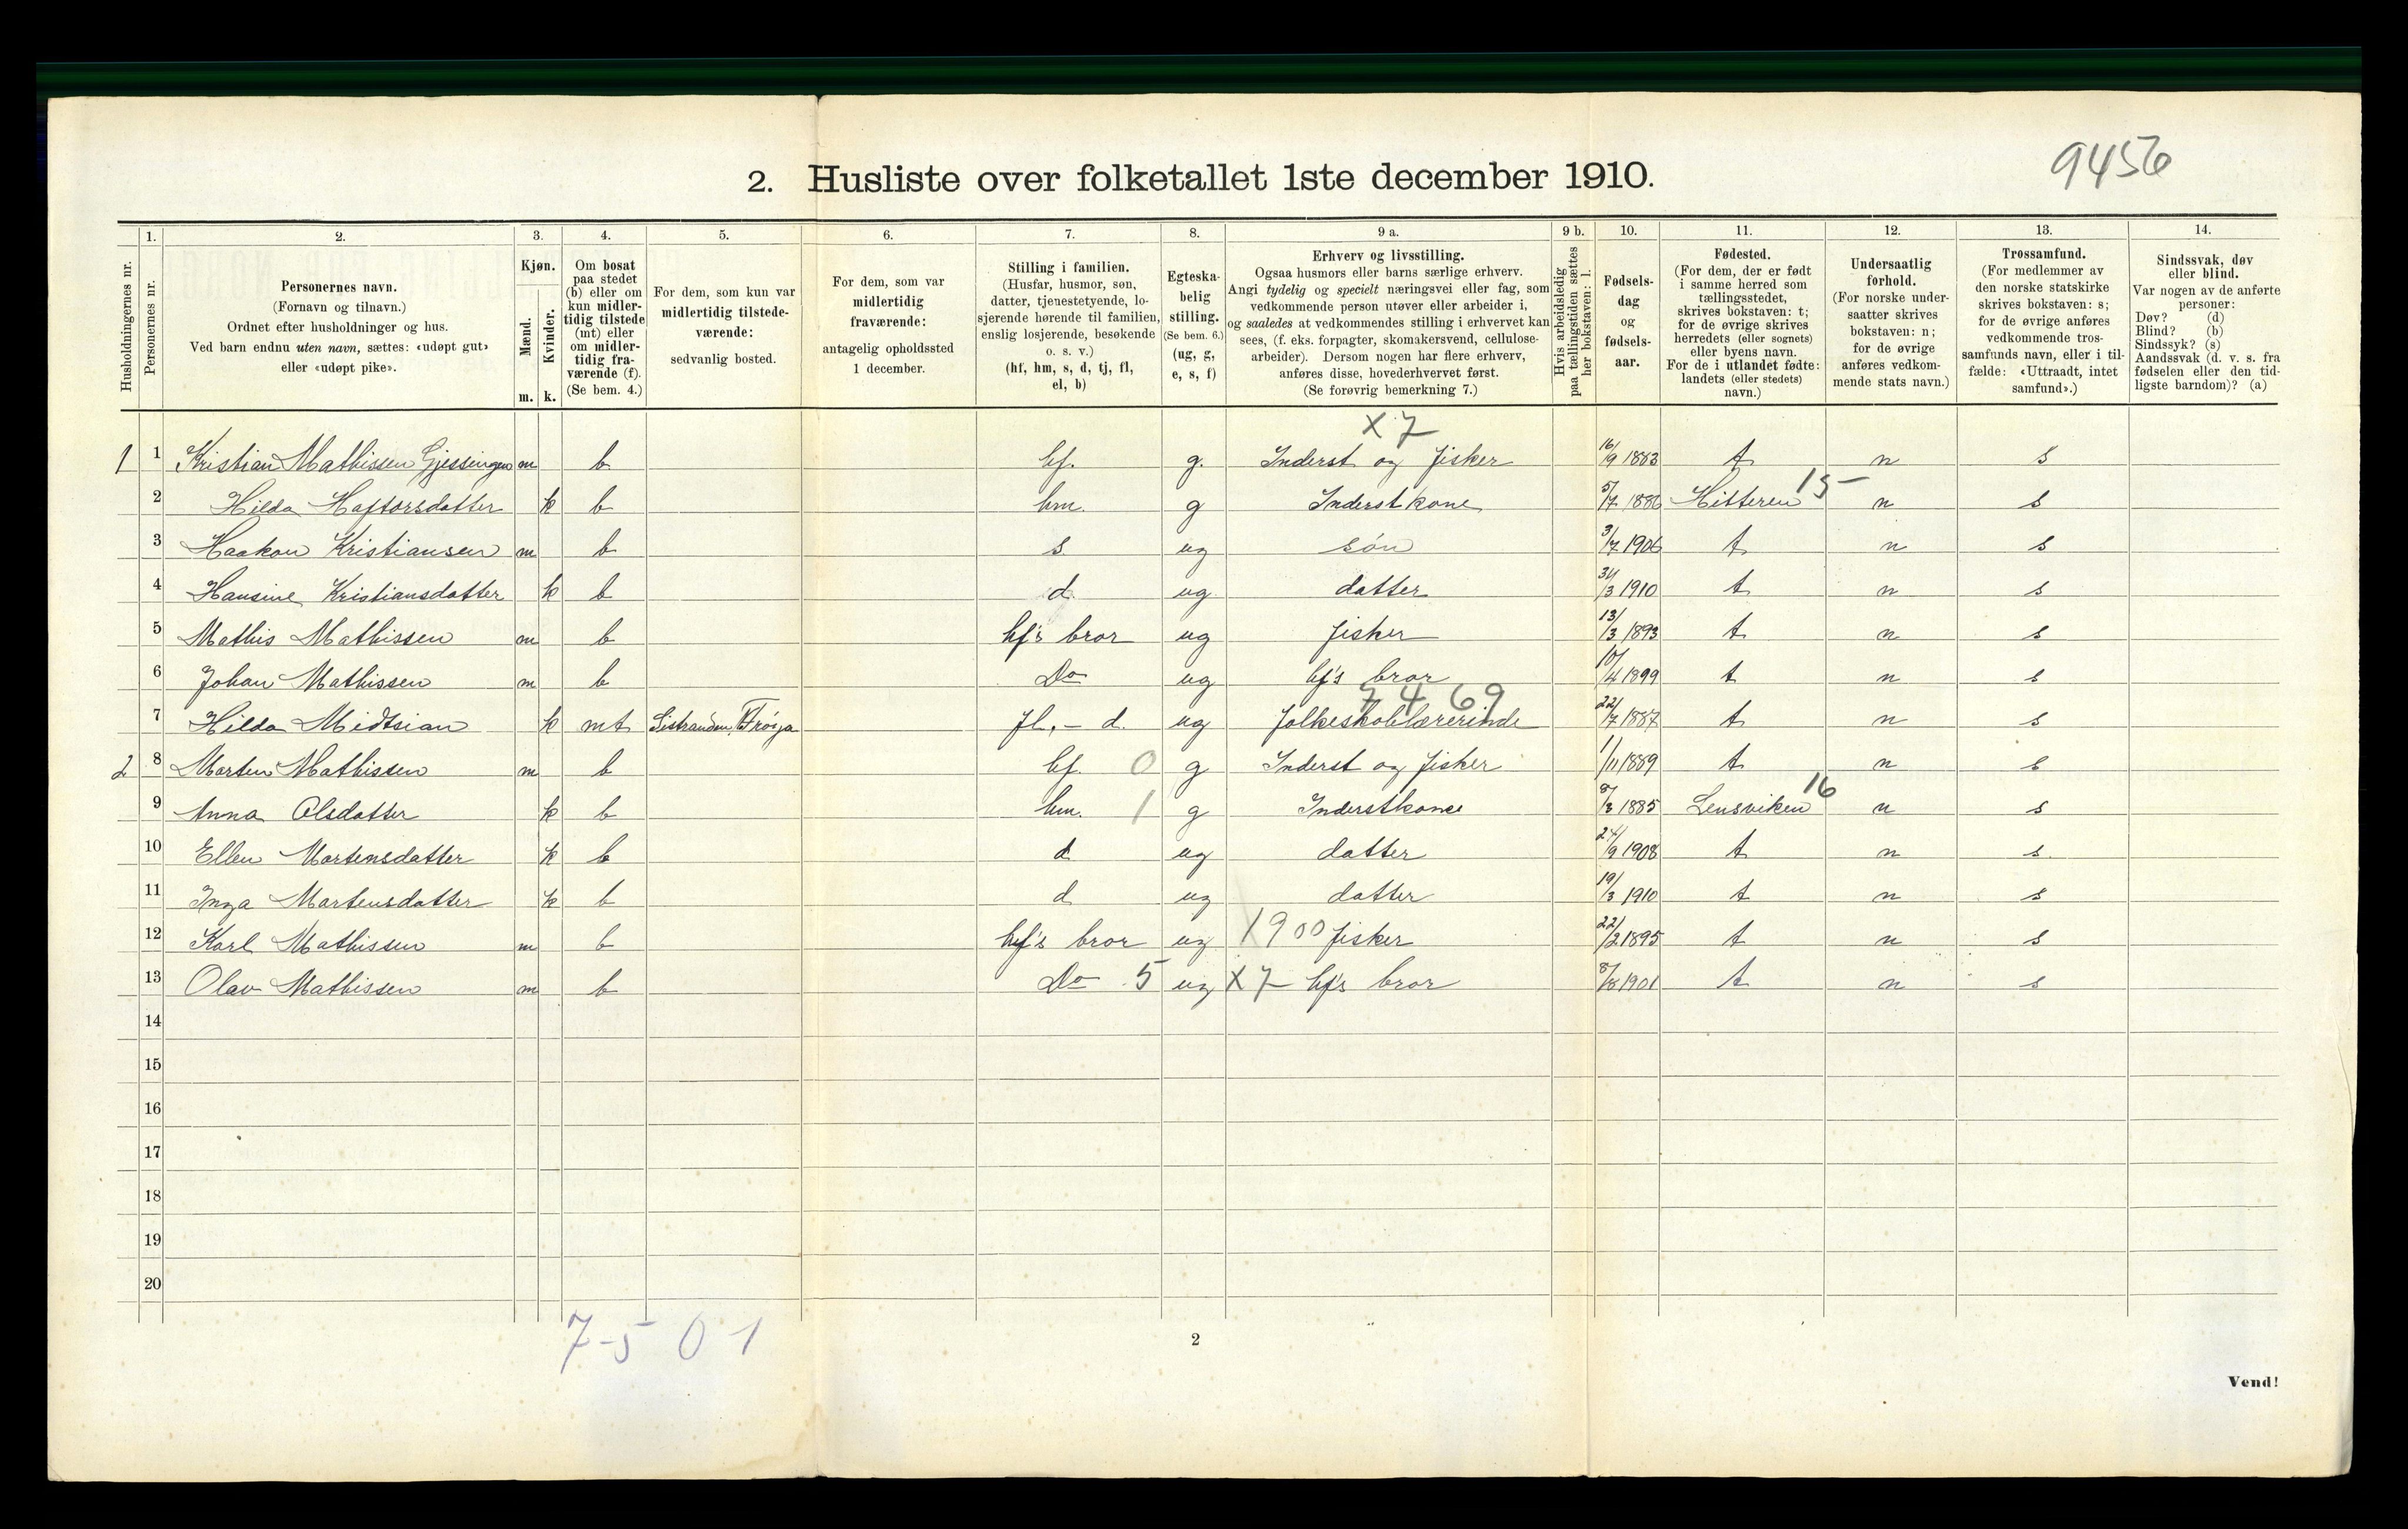 9456
2. Husliste over folketallet 1ste december 1910.
Husholdningernes nr.
1. Personernes nr.
2. Personernes navn. (Fornavn og tilnavn.) Ordnet efter husholdninger og hus. Ved barn endnu uten navn, sættes: «udøpt gut» eller «udøpt pike».
3. Kjøn. Mænd. m. Kvinder. k.
4. Om bosat paa stedet (b) eller om kun midlertidig tilstede (mt) eller om midlertidig fraværende (f). (Se bem. 4.)
5. For dem, som kun var midlertidig tilstedeværende: sedvanlig bosted.
6. For dem, som var midlertidig fraværende: antagelig opholdssted 1 december.
7. Stilling i familien. (Husfar, husmor, søn, datter, tjenestetyende, losjerende hørende til familien, enslig losjerende, besøkende o. s. v.) (hf, hm, s, d, tj, fl, el, b)
8. Egteskabelig stilling. (Se bem. 6.) (ug, g, e, s, f)
9 a. Erhverv og livsstilling. Ogsaa husmors eller barns særlige erhverv. Angi tydelig og specielt næringsvei eller fag, som vedkommende person utøver eller arbeider i, og saaledes at vedkommendes stilling i erhvervet kan sees, (f. eks. forpagter, skomakersvend, cellulosearbeider). Dersom nogen har flere erhverv, anføres disse, hovederhvervet først. (Se forøvrig bemerkning 7.)
9 b. Hvis arbeidsledig paa tællingstiden sættes her bokstaven: l.
10. Fødselsdag og fødselsaar.
11. Fødested. (For dem, der er født i samme herred som tællingsstedet, skrives bokstaven: t; for de øvrige skrives herredets (eller sognets) eller byens navn. For de i utlandet fødte: landets (eller stedets) navn.)
12. Undersaatlig forhold. (For norske undersaatter skrives bokstaven: n; for de øvrige anføres vedkommende stats navn.)
13. Trossamfund. (For medlemmer av den norske statskirke skrives bokstaven: s; for de øvrige anføres vedkommende trossamfunds navn, eller i tilfælde: «Uttraadt, intet samfund».)
14. Sindssvak, døv eller blind. Var nogen av de anførte personer: Døv? (d) Blind? (b) Sindssyk? (s) Aandssvak (d. v. s. fra fødselen eller den tidligste barndom)? (a)
X 7
1 1 Kristian Mathissen Gjessingen m b hf. g. Inderst og fisker 16/9 1883 t n s
2 Hilda Haftorsdatter k b hm. g Inderstkone 5/7 1886 Hitteren 15 n s
3 Haakon Kristiansen m b s. ug søn 3/7 1906 t n s
4 Hansine Kristiansdatter k b d. ug datter 31/3 1910 t n s
5 Mathis Mathissen m b hf's bror ug fisker 13/3 1893 t n s
6 Johan Mathissen m b Do ug hf's bror 10/4 1899 t n s
7 4 69
7 Hilda Midtsian k mt Sistranden, Frøya fl, - d. ug folkeskolelærerinde 22/7 1887 t n s
2 8 Morten Mathissen m b hf. 0 g Inderst og fisker 1/11 1889 t n s
9 Anna Olsdatter k b hm. 1 g Inderstkone 8/3 1885 Lensviken 16 n s
10 Ellen Mortensdatter k b d ug datter 24/9 1908 t n s.
11 Inga Mortensdatter k b d ug datter 19/3 1910 t n s
12 Karl Mathissen m b hf's bror ug X900 fisker 22/2 1895 t n s
13 Olav Mathissen m b Do 5 ug X7 hf's bror 8/8 1901 t n s
14
15
16
17
18
19
20
7-5 0 1
2
Vend!